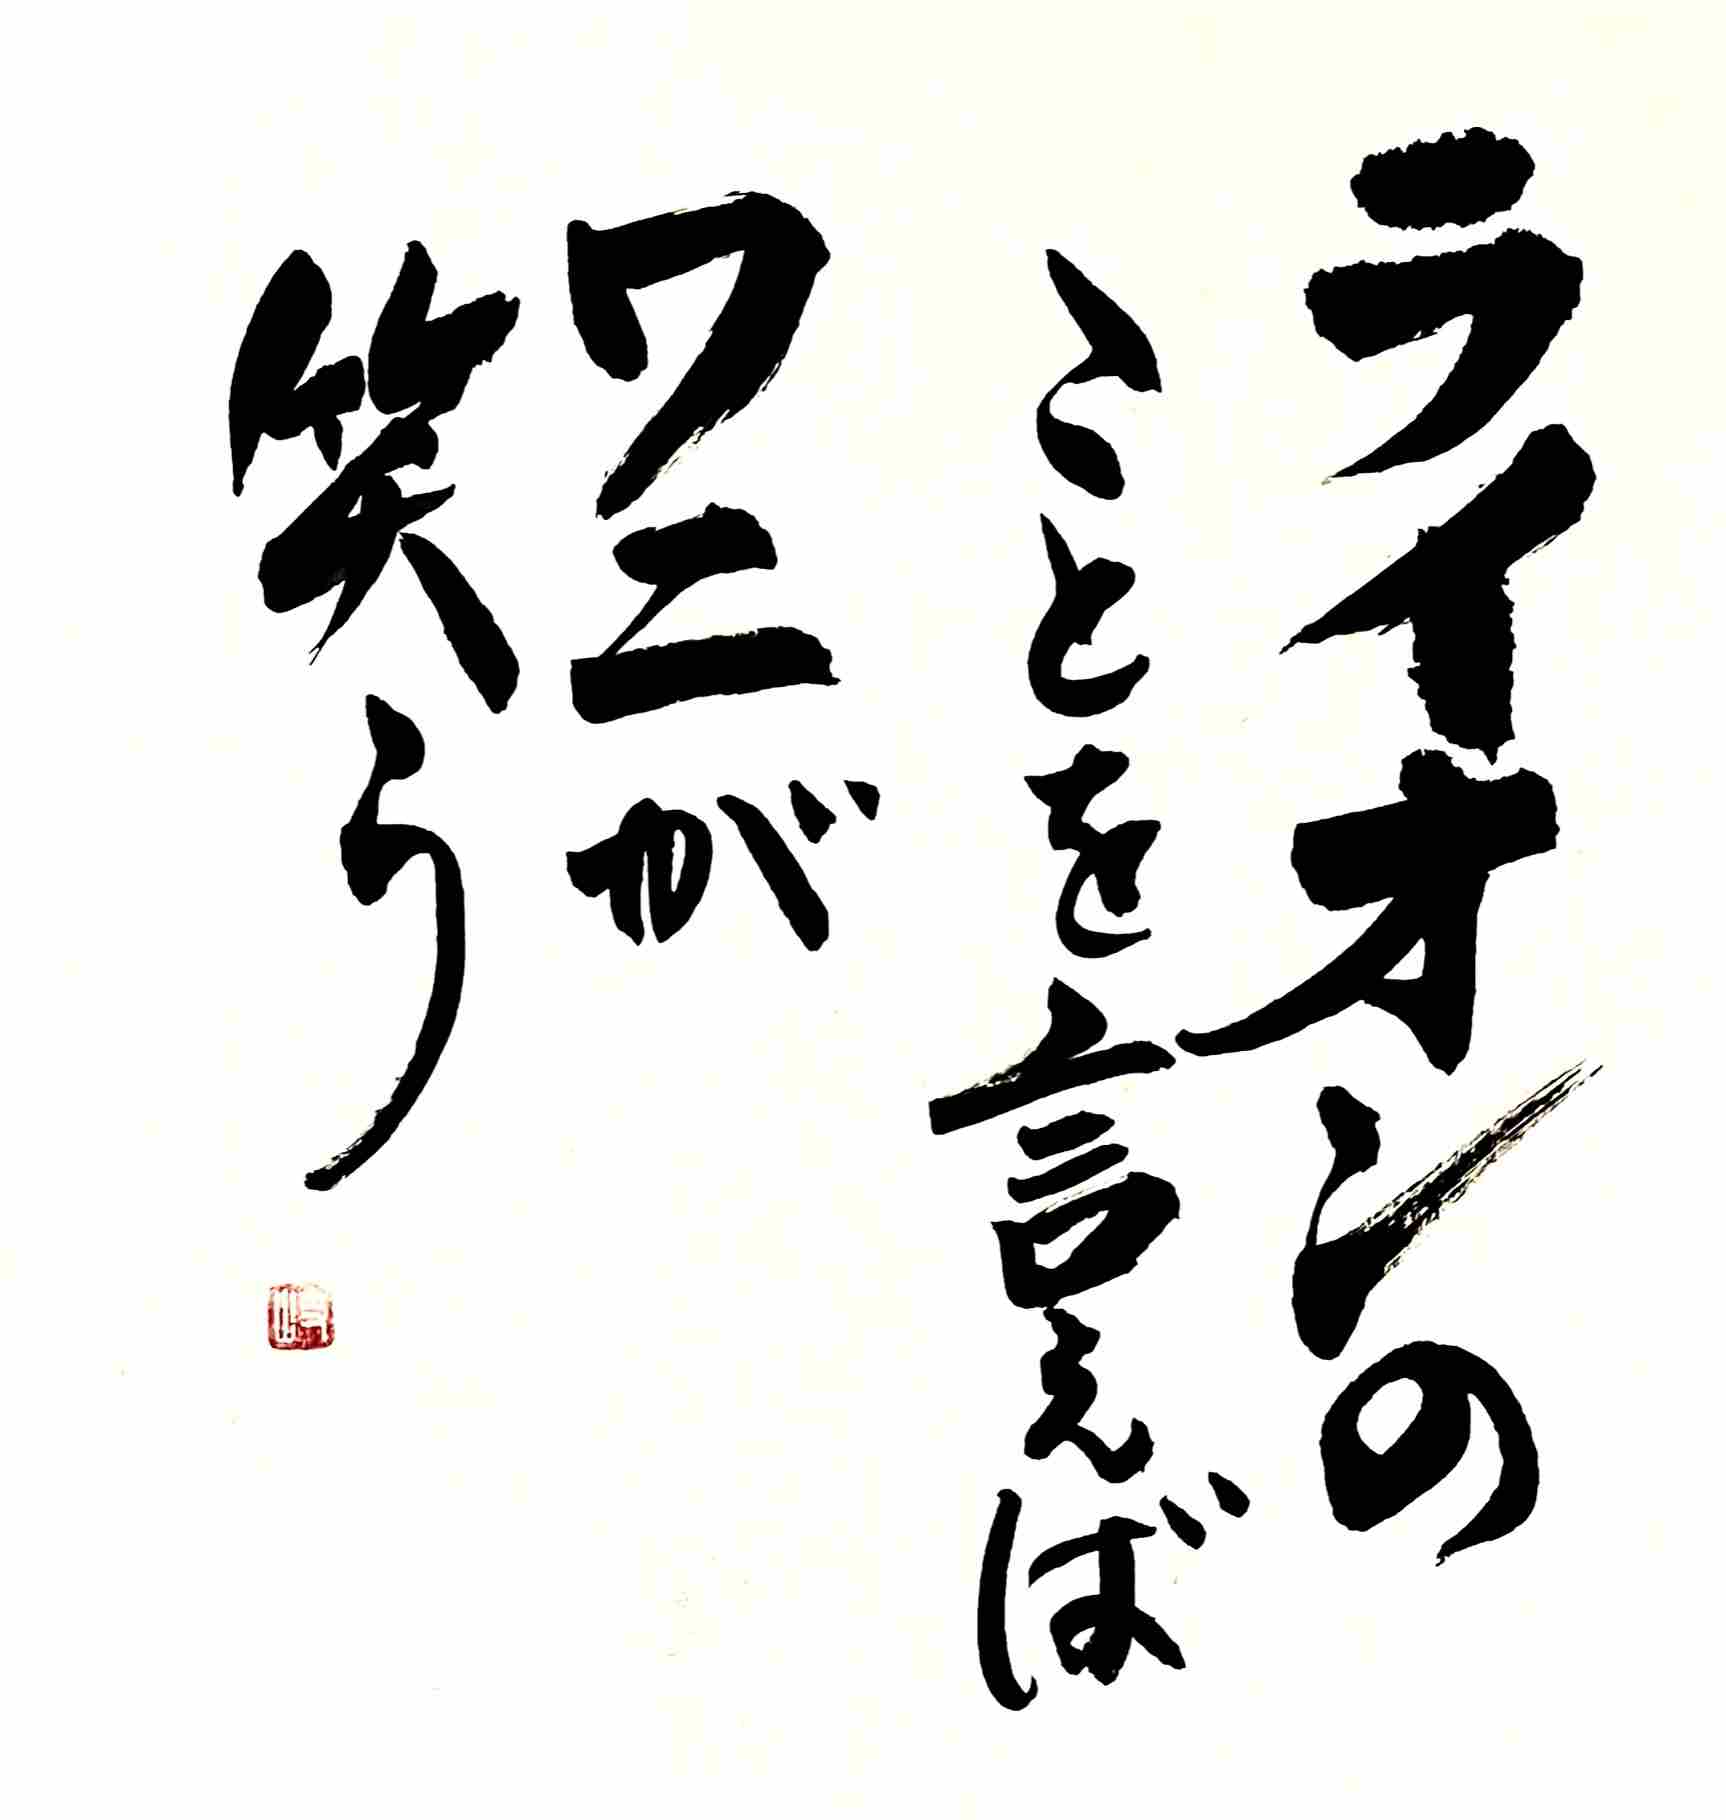 ライオンの
ことを言えば
ワニが
笑う